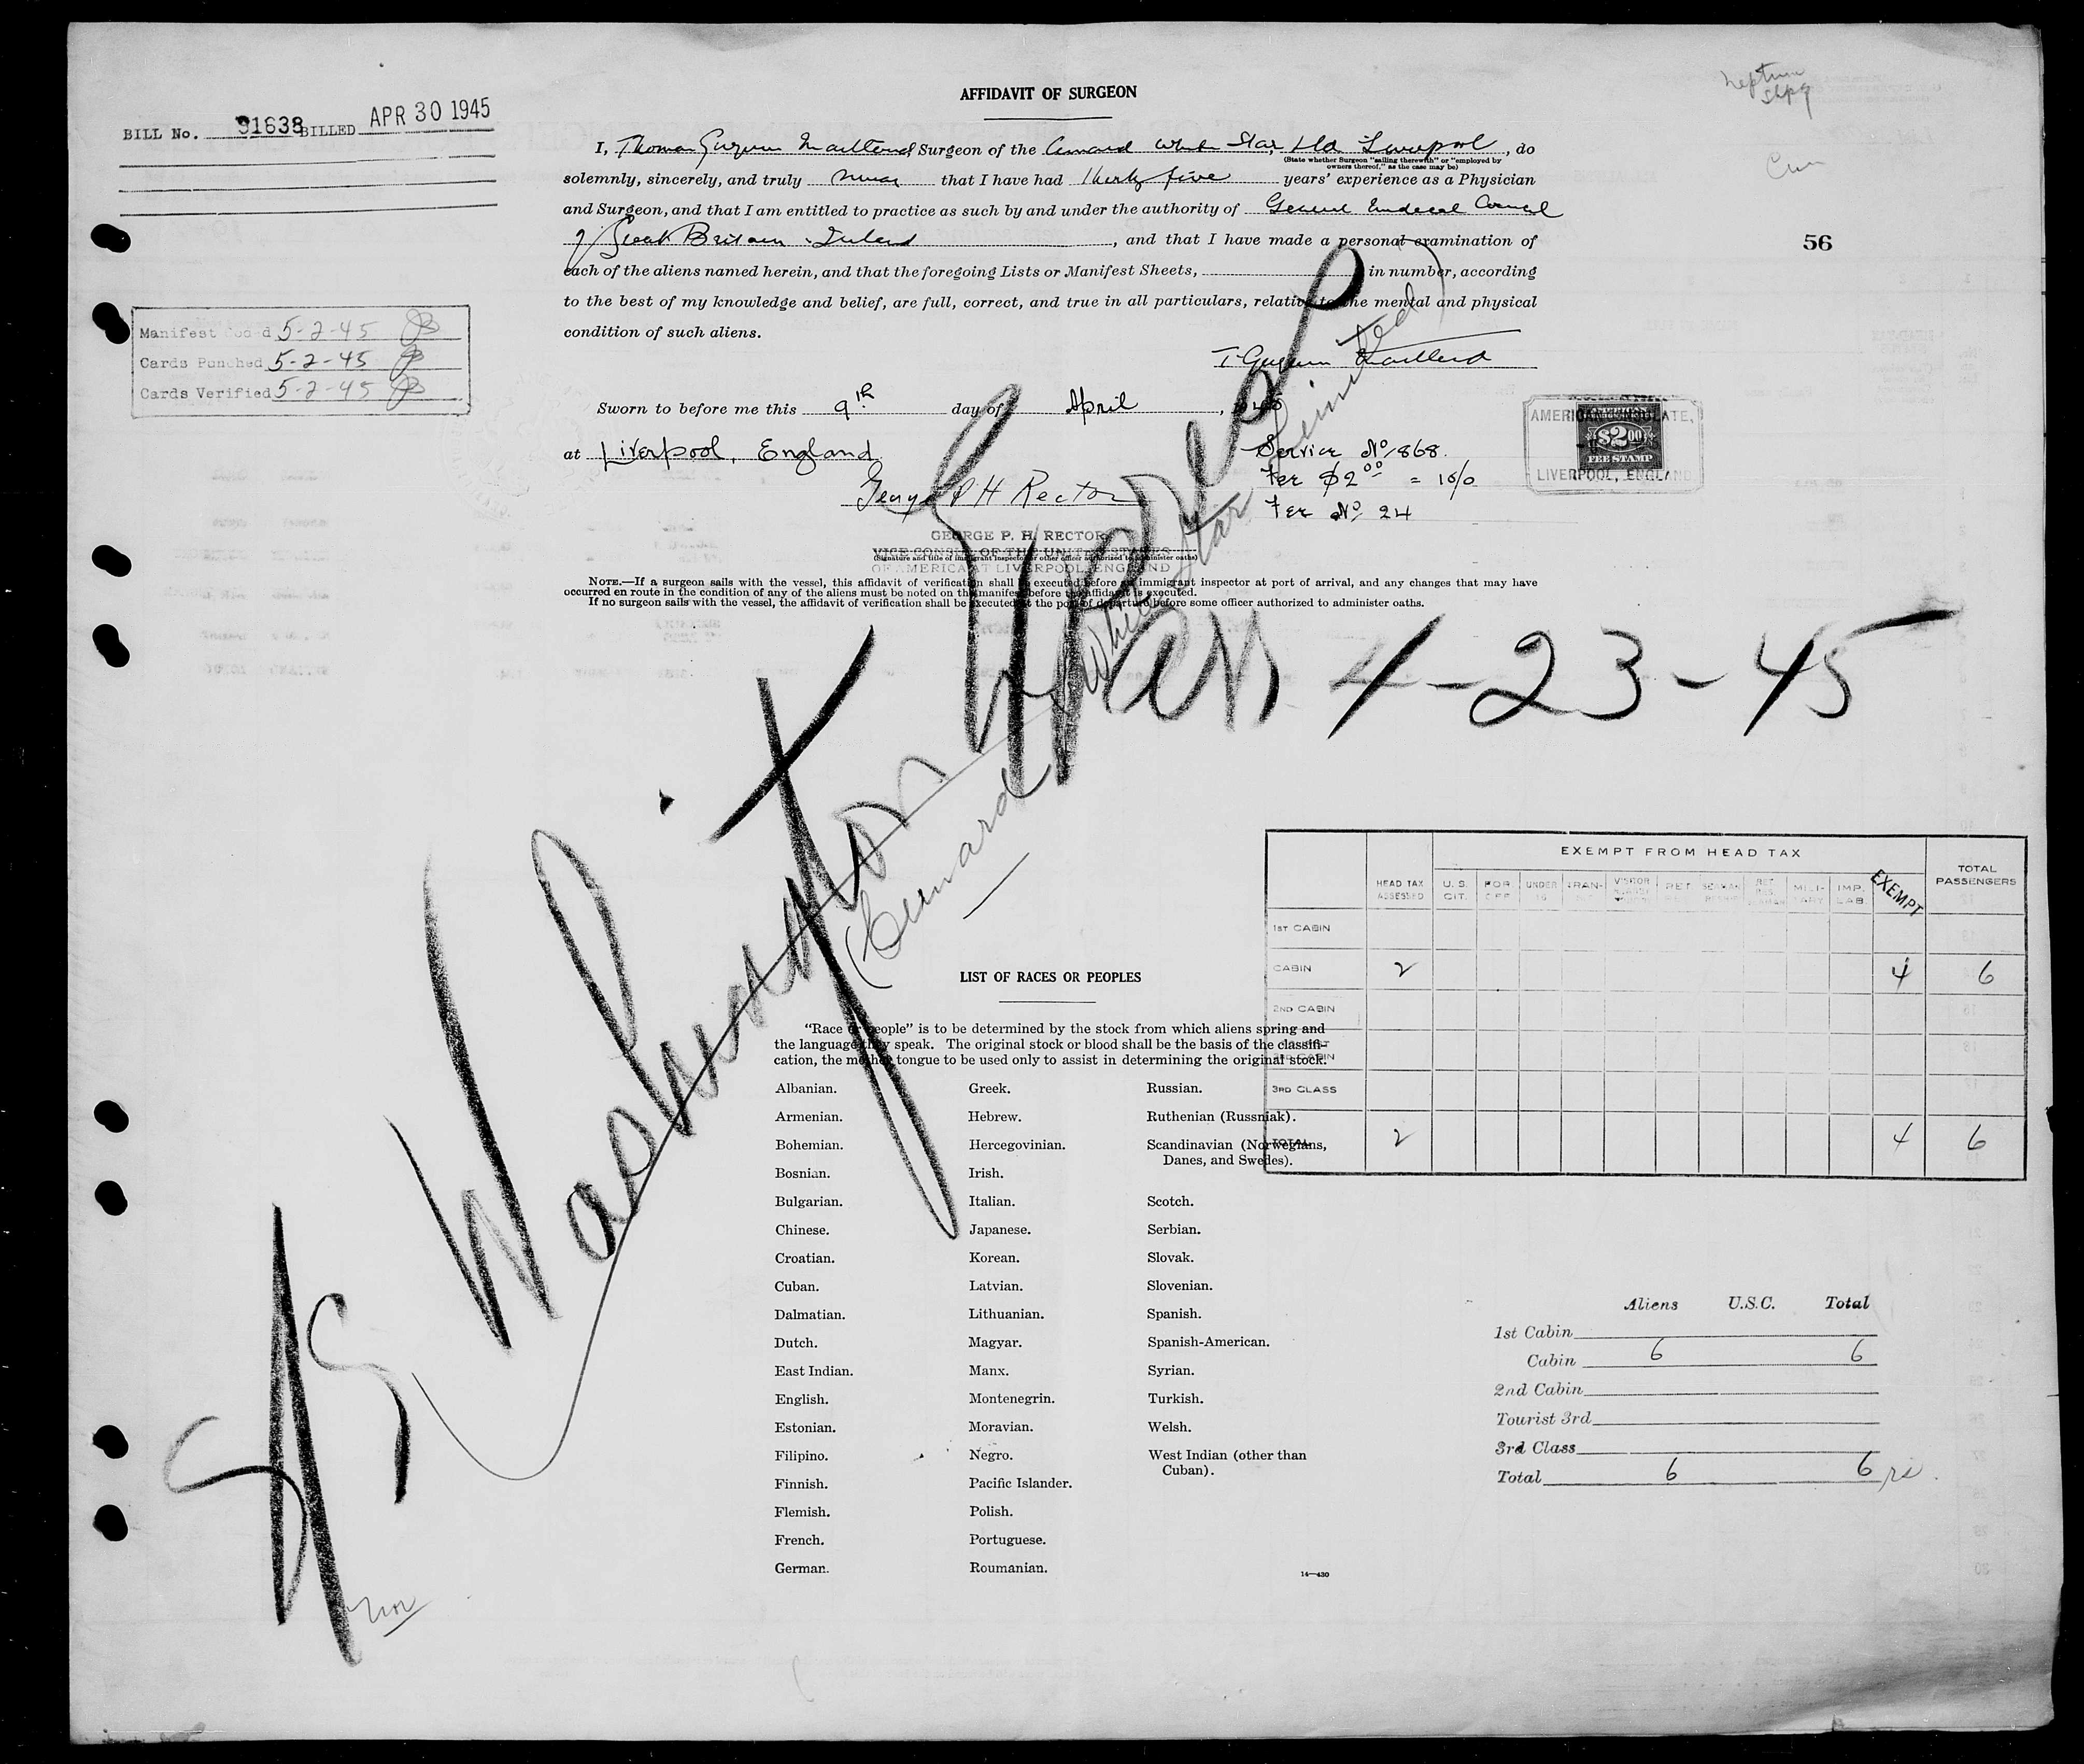 AFFIDAVIT OF SURGEON
Neptune
Shpg
BILL No. 91638 BILLED APR 30 1945
I, Thomas Maitland Surgeon of the Cunard White Star Ltd Liverpool, do
(State whether Surgeon "sailing therewith" or "employed by
owners thereof," as the case may be)
solemnly, sincerely, and truly swear that I have had thirty five years' experience as a Physician
and Surgeon, and that I am entitled to practice as such by and under the authority of General Medical Council
of Great Britain Ireland, and that I have made a personal examination of
56
each of the aliens named herein, and that the foregoing Lists or Manifest Sheets, in number, according
to the best of my knowledge and belief, are full, correct, and true in all particulars, relative to the mental and physical
condition of such aliens.
Manifest Coded 5-2-45
Cards Punched 5-2-45
Cards Verified 5-2-45
T Maitland
Sworn to before me this 9th day of April, 1945
at Liverpool, England
Service No 1868.
Fee $2.00 = 10/0
Fee No 24
AMERICAN CONSULATE,
$2.00
FEE STAMP
LIVERPOOL, ENGLAND
George P H Rector
GEORGE P. H. RECTOR
VICE CONSUL OF THE UNITED STATES
(Signature and title of immigrant inspector or other officer authorized to administer oaths)
OF AMERICA AT LIVERPOOL, ENGLAND
NOTE.—If a surgeon sails with the vessel, this affidavit of verification shall be executed before an immigrant inspector at port of arrival, and any changes that may have
occurred en route in the condition of any of the aliens must be noted on the manifest before the affidavit is executed.
If no surgeon sails with the vessel, the affidavit of verification shall be executed at the port of departure before some officer authorized to administer oaths.
SS Washington Express
(Cunard White Star Limited)
Arr 4-23-45
EXEMPT FROM HEAD TAX
HEAD TAX ASSESSED U.S. CIT. FOR. OFF. UNDER 16 TRAN- VISITOR RET. MILI- TARY IMP. LAB. EXEMPT TOTAL PASSENGERS
1ST CABIN
CABIN 2 4 6
2ND CABIN
3RD CABIN
3RD CLASS
TOTAL 2 4 6
LIST OF RACES OR PEOPLES
"Race or people" is to be determined by the stock from which aliens spring and
the language they speak. The original stock or blood shall be the basis of the classifi-
cation, the mother tongue to be used only to assist in determining the original stock.
Albanian.
Armenian.
Bohemian.
Bosnian.
Bulgarian.
Chinese.
Croatian.
Cuban.
Dalmatian.
Dutch.
East Indian.
English.
Estonian.
Filipino.
Finnish.
Flemish.
French.
German.
Greek.
Hebrew.
Hercegovinian.
Irish.
Italian.
Japanese.
Korean.
Latvian.
Lithuanian.
Magyar.
Manx.
Montenegrin.
Moravian.
Negro.
Pacific Islander.
Polish.
Portuguese.
Roumanian.
Russian.
Ruthenian (Russniak).
Scandinavian (Norwegians,
Danes, and Swedes).
Scotch.
Serbian.
Slovak.
Slovenian.
Spanish.
Spanish-American.
Syrian.
Turkish.
Welsh.
West Indian (other than
Cuban).
14—430
Aliens U.S.C. Total
1st Cabin
Cabin 6 6
2nd Cabin
Tourist 3rd
3rd Class
Total 6 6